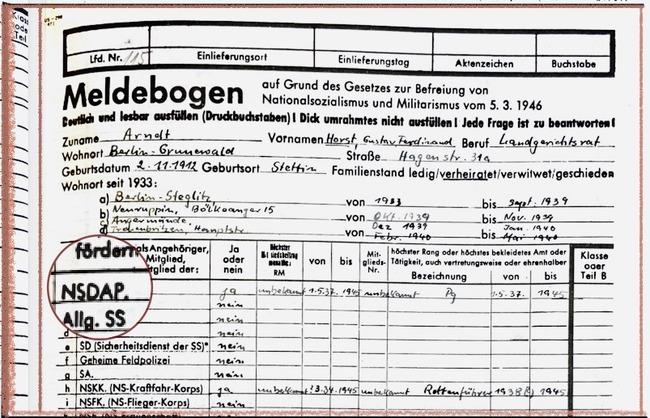 Lfd. Nr. 115 Einlieferungsort Einlieferungstag Aktenzeichen Buchstabe
Meldebogen auf Grund des Gesetzes zur Befreiung von
Nationalsozialismus und Militarismus vom 5. 3. 1946
Deutlich und lesbar ausfüllen (Druckbuchstaben)! Dick umrahmtes nicht ausfüllen! Jede Frage ist zu beantworten!
Zuname Arndt Vornamen Horst, Gustav Ferdinand Beruf Landgerichtsrat
Wohnort Berlin-Grunewald Straße Hagenstr. 31a
Geburtsdatum 2.11.1912 Geburtsort Stettin Familienstand ledig/verheiratet/verwitwet/geschieden
Wohnort seit 1933:
a) Berlin-Steglitz von 1933 bis Sept. 1939
b) Neuruppin, von Okt. 1939 bis Nov. 1939
c) Angermünde, von Dez 1939 bis Jan. 1940
d) Treuenbritzen, Hauptstr. von Febr. 1940 bis Mai 1940
fördern
als Angehöriger, Mitglied, der: Ja oder nein RM von bis Mitglieds-Nr. höchster Rang oder höchstes bekleidetes Amt oder Tätigkeit, auch vertretungsweise oder ehrenhalber Bezeichnung von bis Klasse oder Teil B
NSDAP. ja unbekannt 1.5.37. 1945 unbekannt Pg 1.5.37. 1945
Allg. SS nein
nein
nein
e SD (Sicherheitsdienst der SS)* nein
f Geheime Feldpolizei nein
g SA. nein
h NSKK. (NS-Kraftfahr-Korps) ja unbekannt 1945 unbekannt Rottenführer 1938 1945
i NSFK. (NS-Flieger-Korps) nein